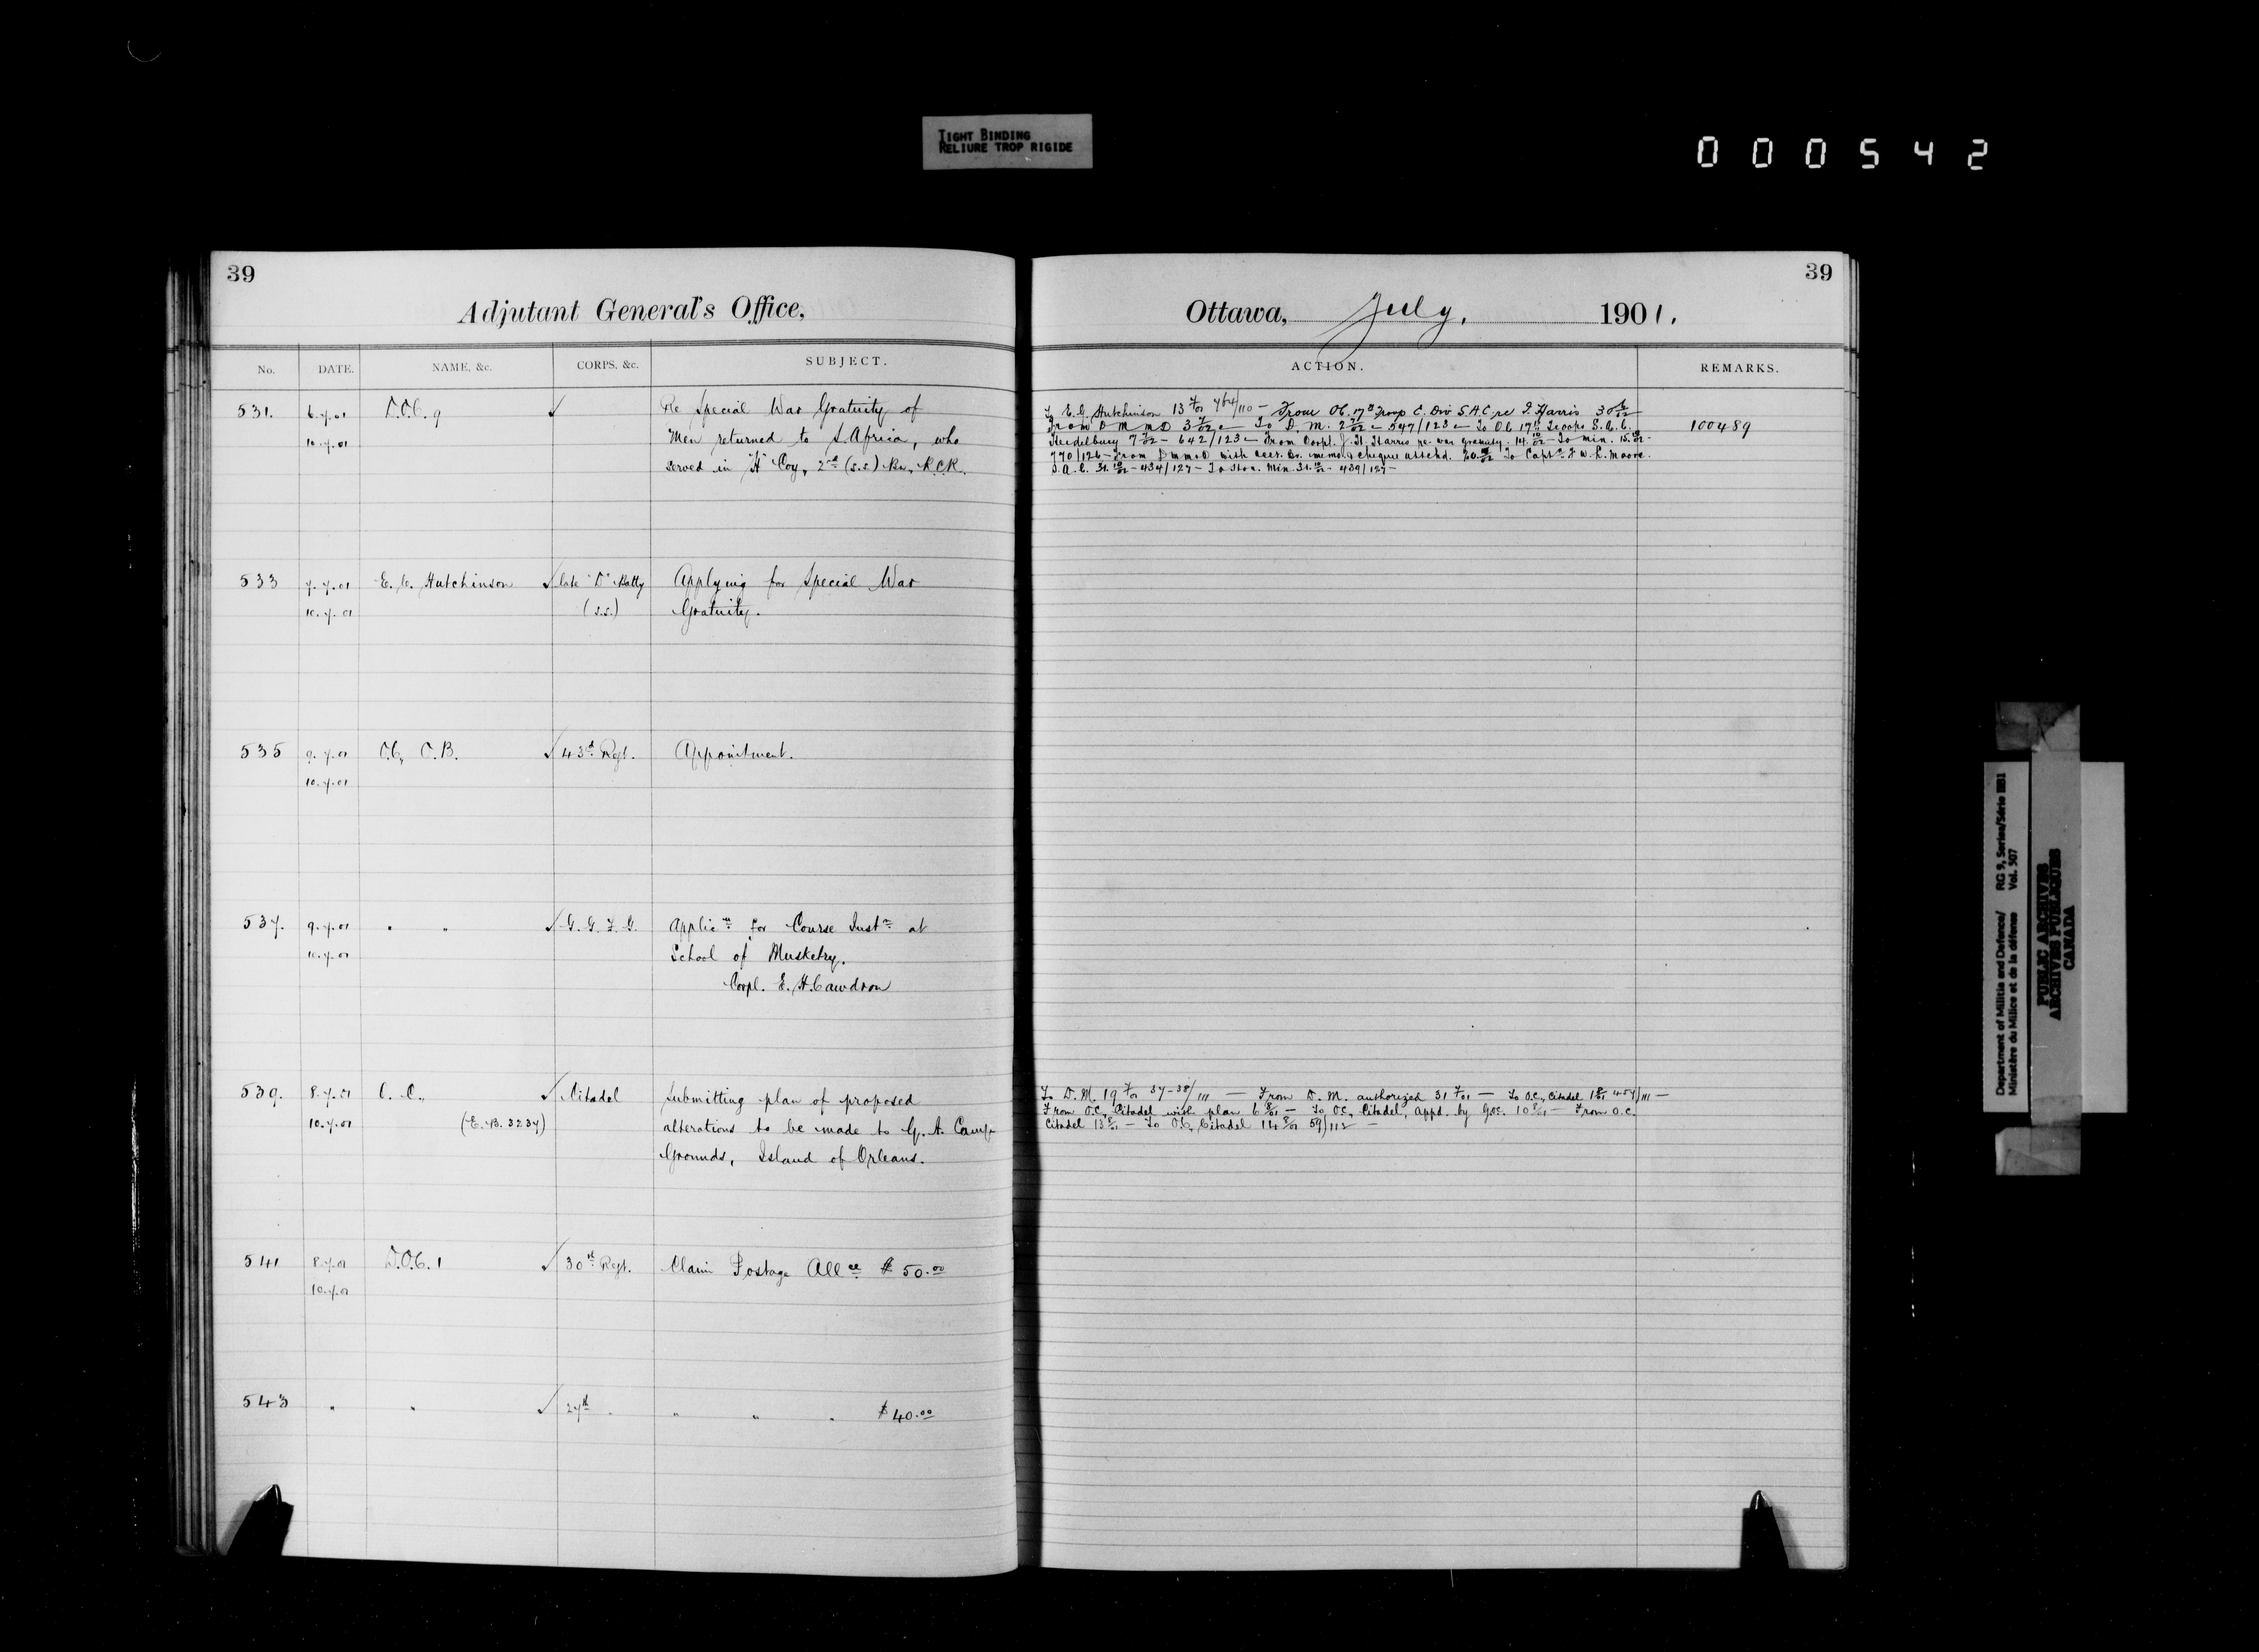 TIGHT BINDING
RELIURE TROP RIGIDE
000542
39
Adjutant General's Office,
No. DATE. NAME, &c. CORPS, &c. SUBJECT.
531. 6.7.01 D.O.C. 9 ✓ Re Special War Gratuity of
10.7.01 Men returned to S. Africa, who
served in "H" Coy, 2nd (s.s.) Bn, R.C.R.
533 7.7.01 E. C. Hutchinson ✓ late "D" Batty Applying for Special War
10.7.01 (s.s.) Gratuity.
535 9.7.01 O.C., O.B. ✓ 43rd Regt. Appointment.
10.7.01
537. 9.7.01 " " ✓ G. G. F. G. Applicn for Course Instn at
10.7.01 School of Musketry.
Corpl. E. H. Cawdron
539. 8.7.01 C. O., ✓ Citadel Submitting plan of proposed
10.7.01 (E.B. 3234) alterations to be made to G. A. Camp
Grounds, Island of Orleans.
541 8.7.01 D.O.C. 1 ✓ 30th Regt. Claim Postage Allce $50.00
10.7.01
543 " " ✓ 27th " " " " $40.00
39
Ottawa, July, 1901.
ACTION. REMARKS.
To E. C. Hutchinson 13 7/01 764/110 — From OC. 17th Troop C. Div S.A.C. re J. Harris 30
From D M M D 3 7/02 — To D. M. 2 7/02 — 547/123 — To OC 17th Troops S.A.C. 100489
Heidelburg 7 7/02 — 642/123 — From Corpl. J. H. Harris re. war gratuity. 14. 10/02 — To Min. 15. 10/02 —
770/126 — From D M M D with memo & cheque attchd. 20. To Capt. J. W. L. Moore
S.A.C. 31. 10/02 — 434/127 — To Hon. Min. 31. 10/02 — 439/127 —
To D. M. 19 7/01 37-38/111 — From D. M. authorized 31 7/01 — To O.C., Citadel 1 8/01 454/111 —
From O.C., Citadel with plan 6 8/01 — To O.C., Citadel, appd. by G.O.C. 10 8/01 — From O.C.
Citadel 13 8/01 — To O.C., Citadel 14 8/01 59/112 —
Department of Militia and Defence/ RG 9, Series/Série IIB1
Ministère du Milice et de la défense Vol. 507
PUBLIC ARCHIVES
ARCHIVES PUBLIQUES
CANADA